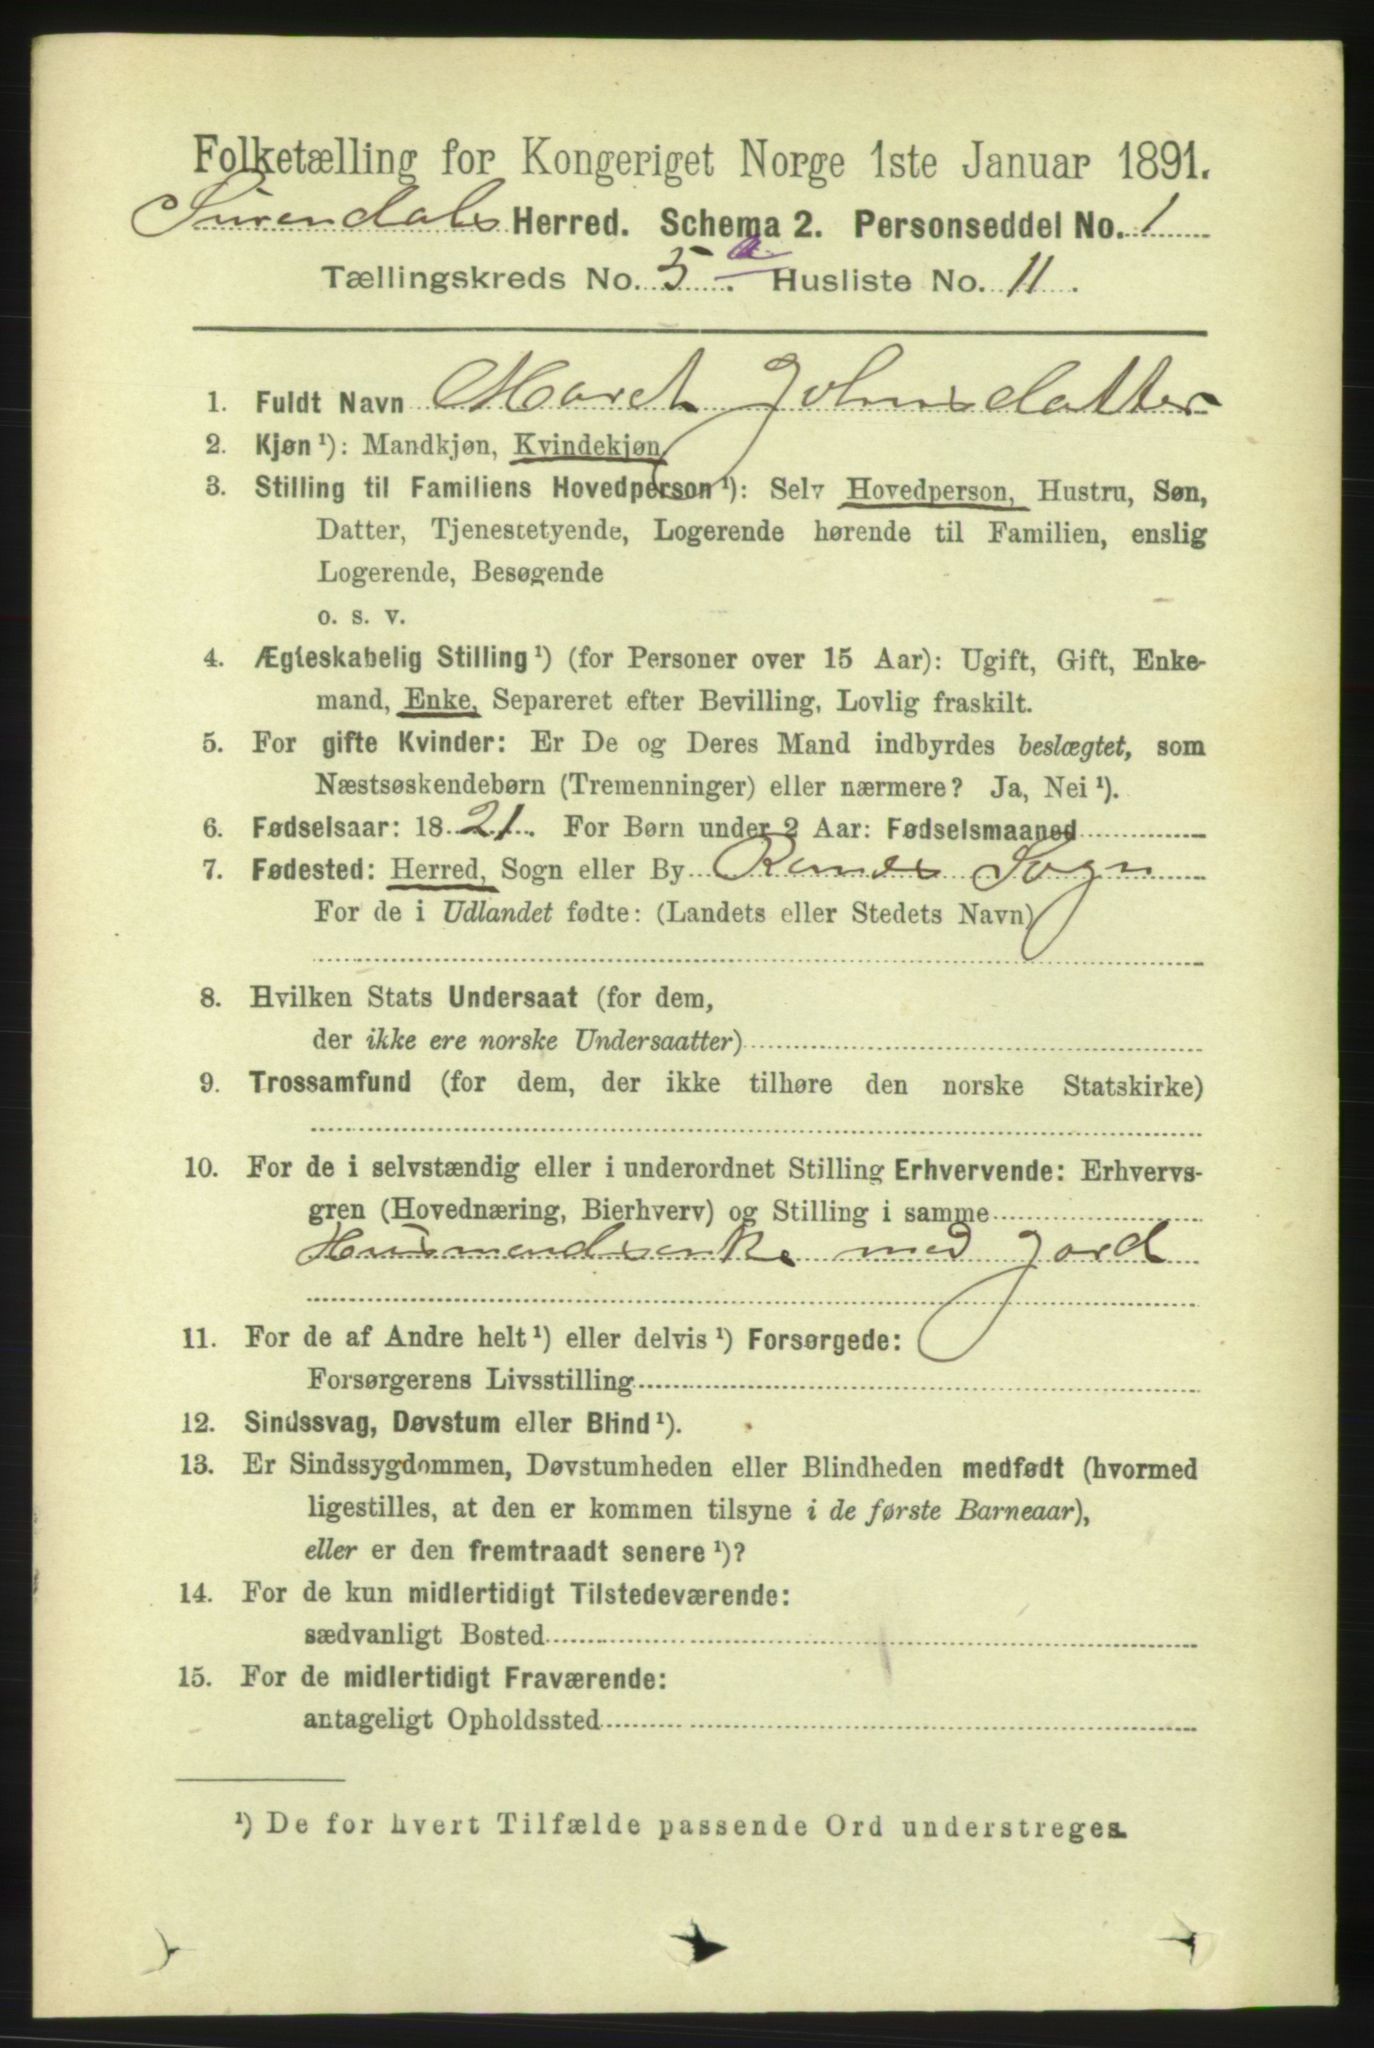 Folketælling for Kongeriget Norge 1ste Januar 1891.
Surendals Herred. Schema 2. Personseddel No. 1
Tællingskreds No. 5 a. Husliste No. 11.
1. Fuldt Navn Maret Johnsdatter
2. Kjøn ¹): Mandkjøn, Kvindekjøn
3. Stilling til Familiens Hovedperson ¹): Selv Hovedperson, Hustru, Søn,
Datter, Tjenestetyende, Logerende hørende til Familien, enslig
Logerende, Besøgende
o. s. v.
4. Ægteskabelig Stilling ¹) (for Personer over 15 Aar): Ugift, Gift, Enke-
mand, Enke, Separeret efter Bevilling, Lovlig fraskilt.
5. For gifte Kvinder: Er De og Deres Mand indbyrdes beslægtet, som
Næstsøskendebørn (Tremenninger) eller nærmere? Ja, Nei ¹).
6. Fødselsaar: 1821. For Børn under 2 Aar: Fødselsmaaned
7. Fødested: Herred, Sogn eller By Ranes Sogn
For de i Udlandet fødte: (Landets eller Stedets Navn)
8. Hvilken Stats Undersaat (for dem,
der ikke ere norske Undersaatter)
9. Trossamfund (for dem, der ikke tilhøre den norske Statskirke)
10. For de i selvstændig eller i underordnet Stilling Erhvervende: Erhvervs-
gren (Hovednæring, Bierhverv) og Stilling i samme
Husmandsenke med Jord
11. For de af Andre helt ¹) eller delvis ¹) Forsørgede:
Forsørgerens Livsstilling
12. Sindssvag, Døvstum eller Blind ¹).
13. Er Sindssygdommen, Døvstumheden eller Blindheden medfødt (hvormed
ligestilles, at den er kommen tilsyne i de første Barneaar),
eller er den fremtraadt senere ¹)?
14. For de kun midlertidigt Tilstedeværende:
sædvanligt Bosted
15. For de midlertidigt Fraværende:
antageligt Opholdssted
¹) De for hvert Tilfælde passende Ord understreges.